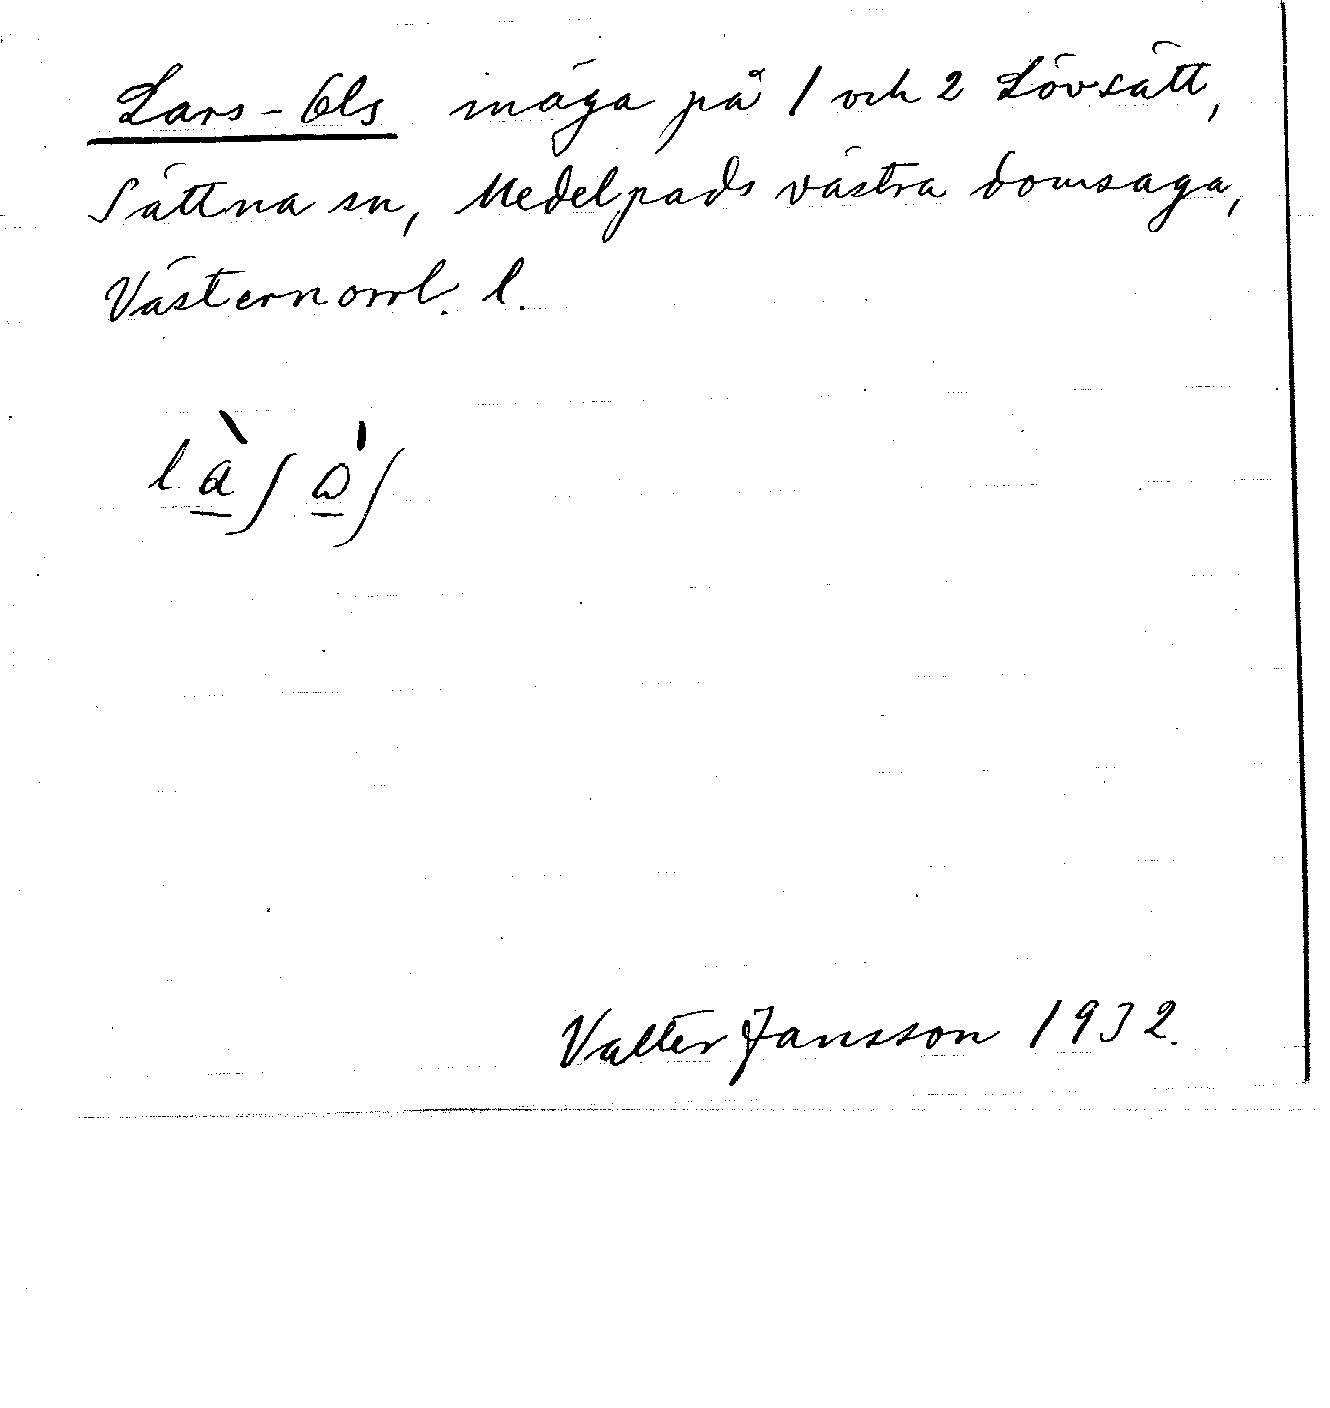 Lars-Ols inäga på 1 och 2 Lövsätt,
Sättna sn, Medelpads västra domsaga,
Västernorrl. l.
Valter Jansson 1932.